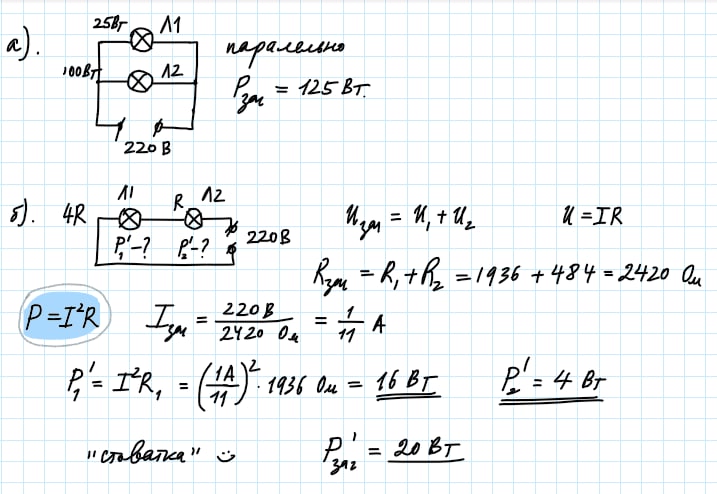 а).
25Вт Л1
100Вт Л2
220 В
паралельно
Pзаг = 125 Вт.
б). 4R Л1 R Л2
P₁'-? P₂'-? 220 В
Uзаг = U₁ + U₂ U = IR
Rзаг = R₁ + R₂ = 1936 + 484 = 2420 Ом
P = I²R Iзаг = 220 В / 2420 Ом = 1/11 А
P₁' = I²R₁ = (1А/11)² · 1936 Ом = 16 Вт P₂' = 4 Вт
"стоватка" Pзаг' = 20 Вт